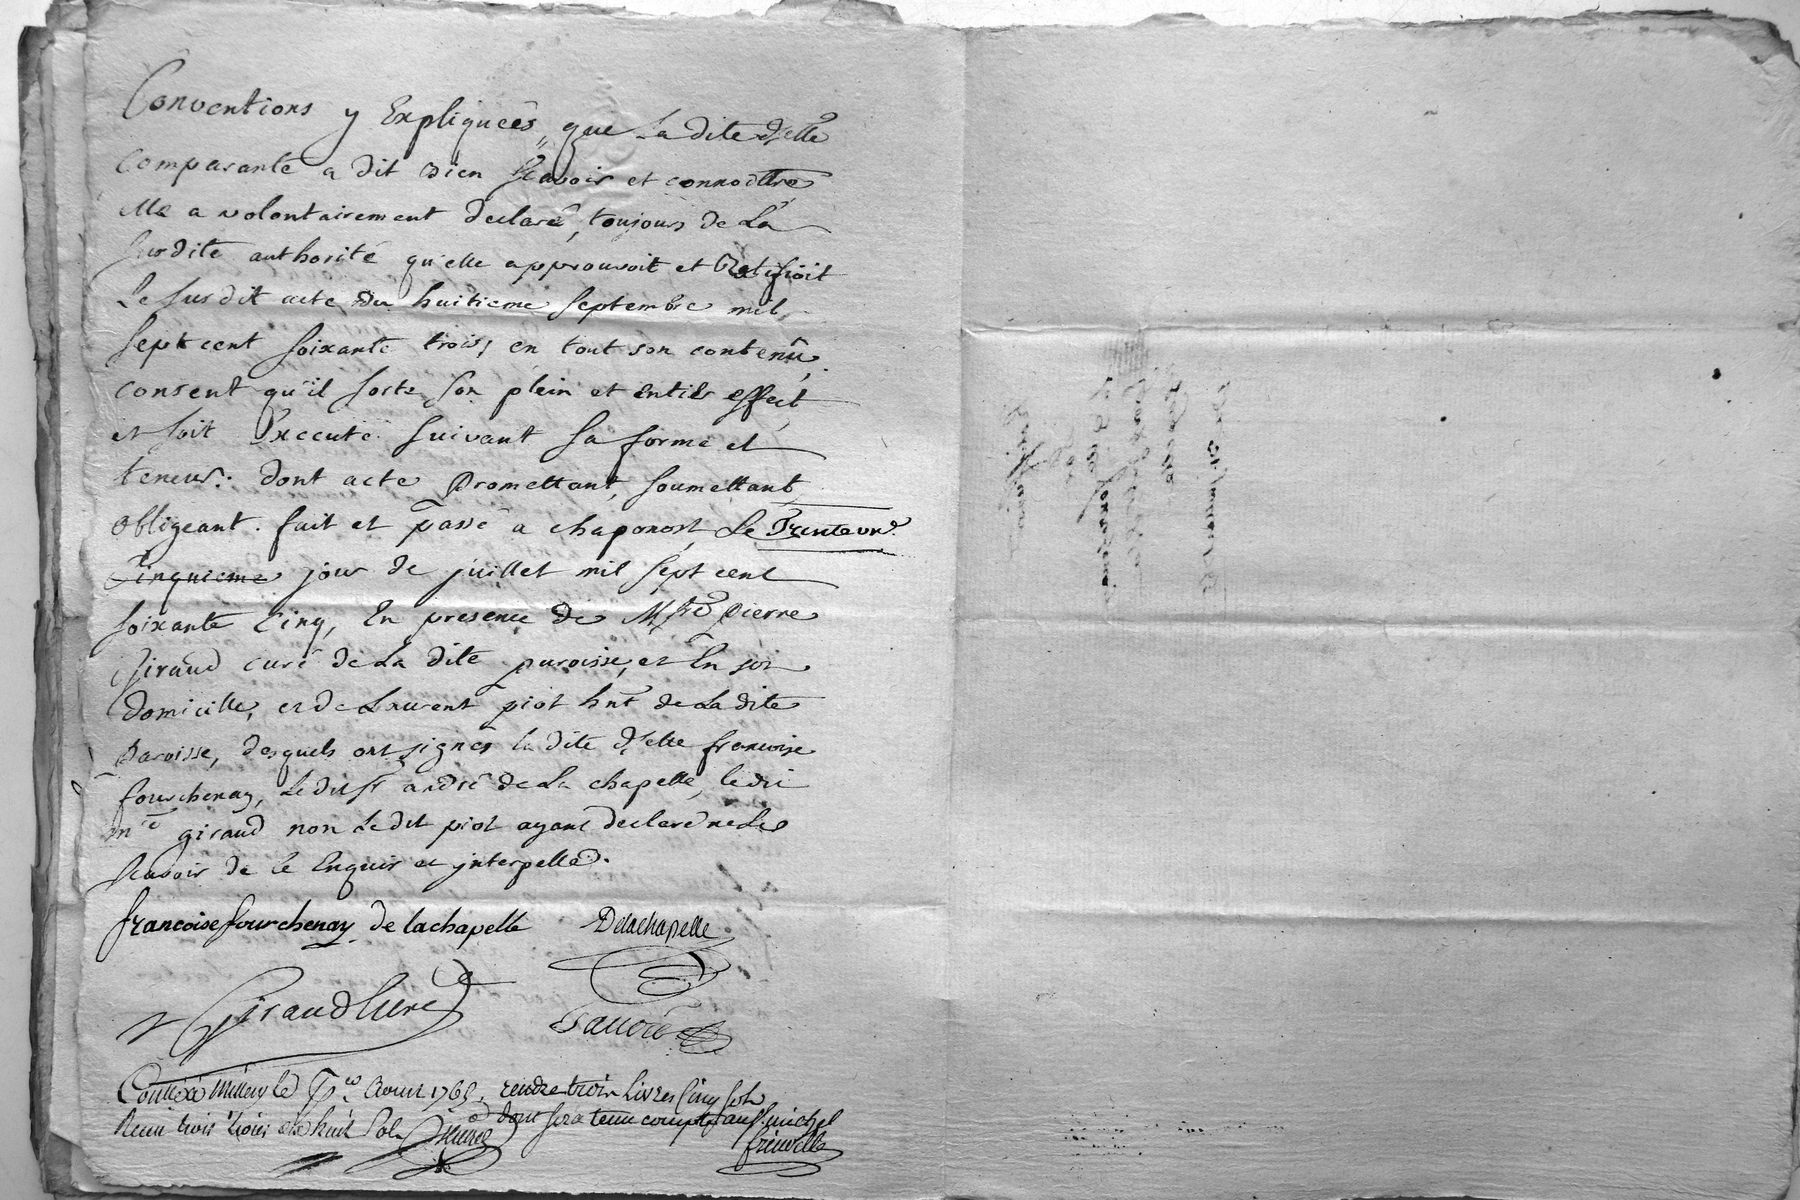 Conventions y Expliquées, que La dite dselle
comparante a dit bien sçavoir et connoître
elle a volontairement declaré, toujours de La
susdite authorité qu'elle approuvoit et Ratifioit
Le susdit acte du huitieme septembre mil
sept cent soixante trois, en tout son contenû,
consent qu'il sorte son plein et entier effect,
et soit Executé suivant sa forme et
teneur. dont acte promettant, soumettant,
obligeant. fait et passé a chaponost Le Trente un.e
Cinquieme jour de juillet mil sept cent
soixante Cinq, En presence de Mre Pierre
Giraud curé de La dite paroisse, et En son
domicille, et de Laurent piot hnt de La dite
Paroisse, desquels ont signés la dite dselle francoise
fourchenay, Le dit sr andré de La chapelle, le dit
mre giraud non Le dit piot ayant declaré ne Le
scavoir de ce Enquis et jnterpellé.
francoise fourchenay de lachapelle Delachapelle
Giraud Curé
Conllé a Millery le Pr. Aoust 1765. trois Livres Cinq sols
Reçu trois Livres huit Sols dont sera tenu compte au s. michel